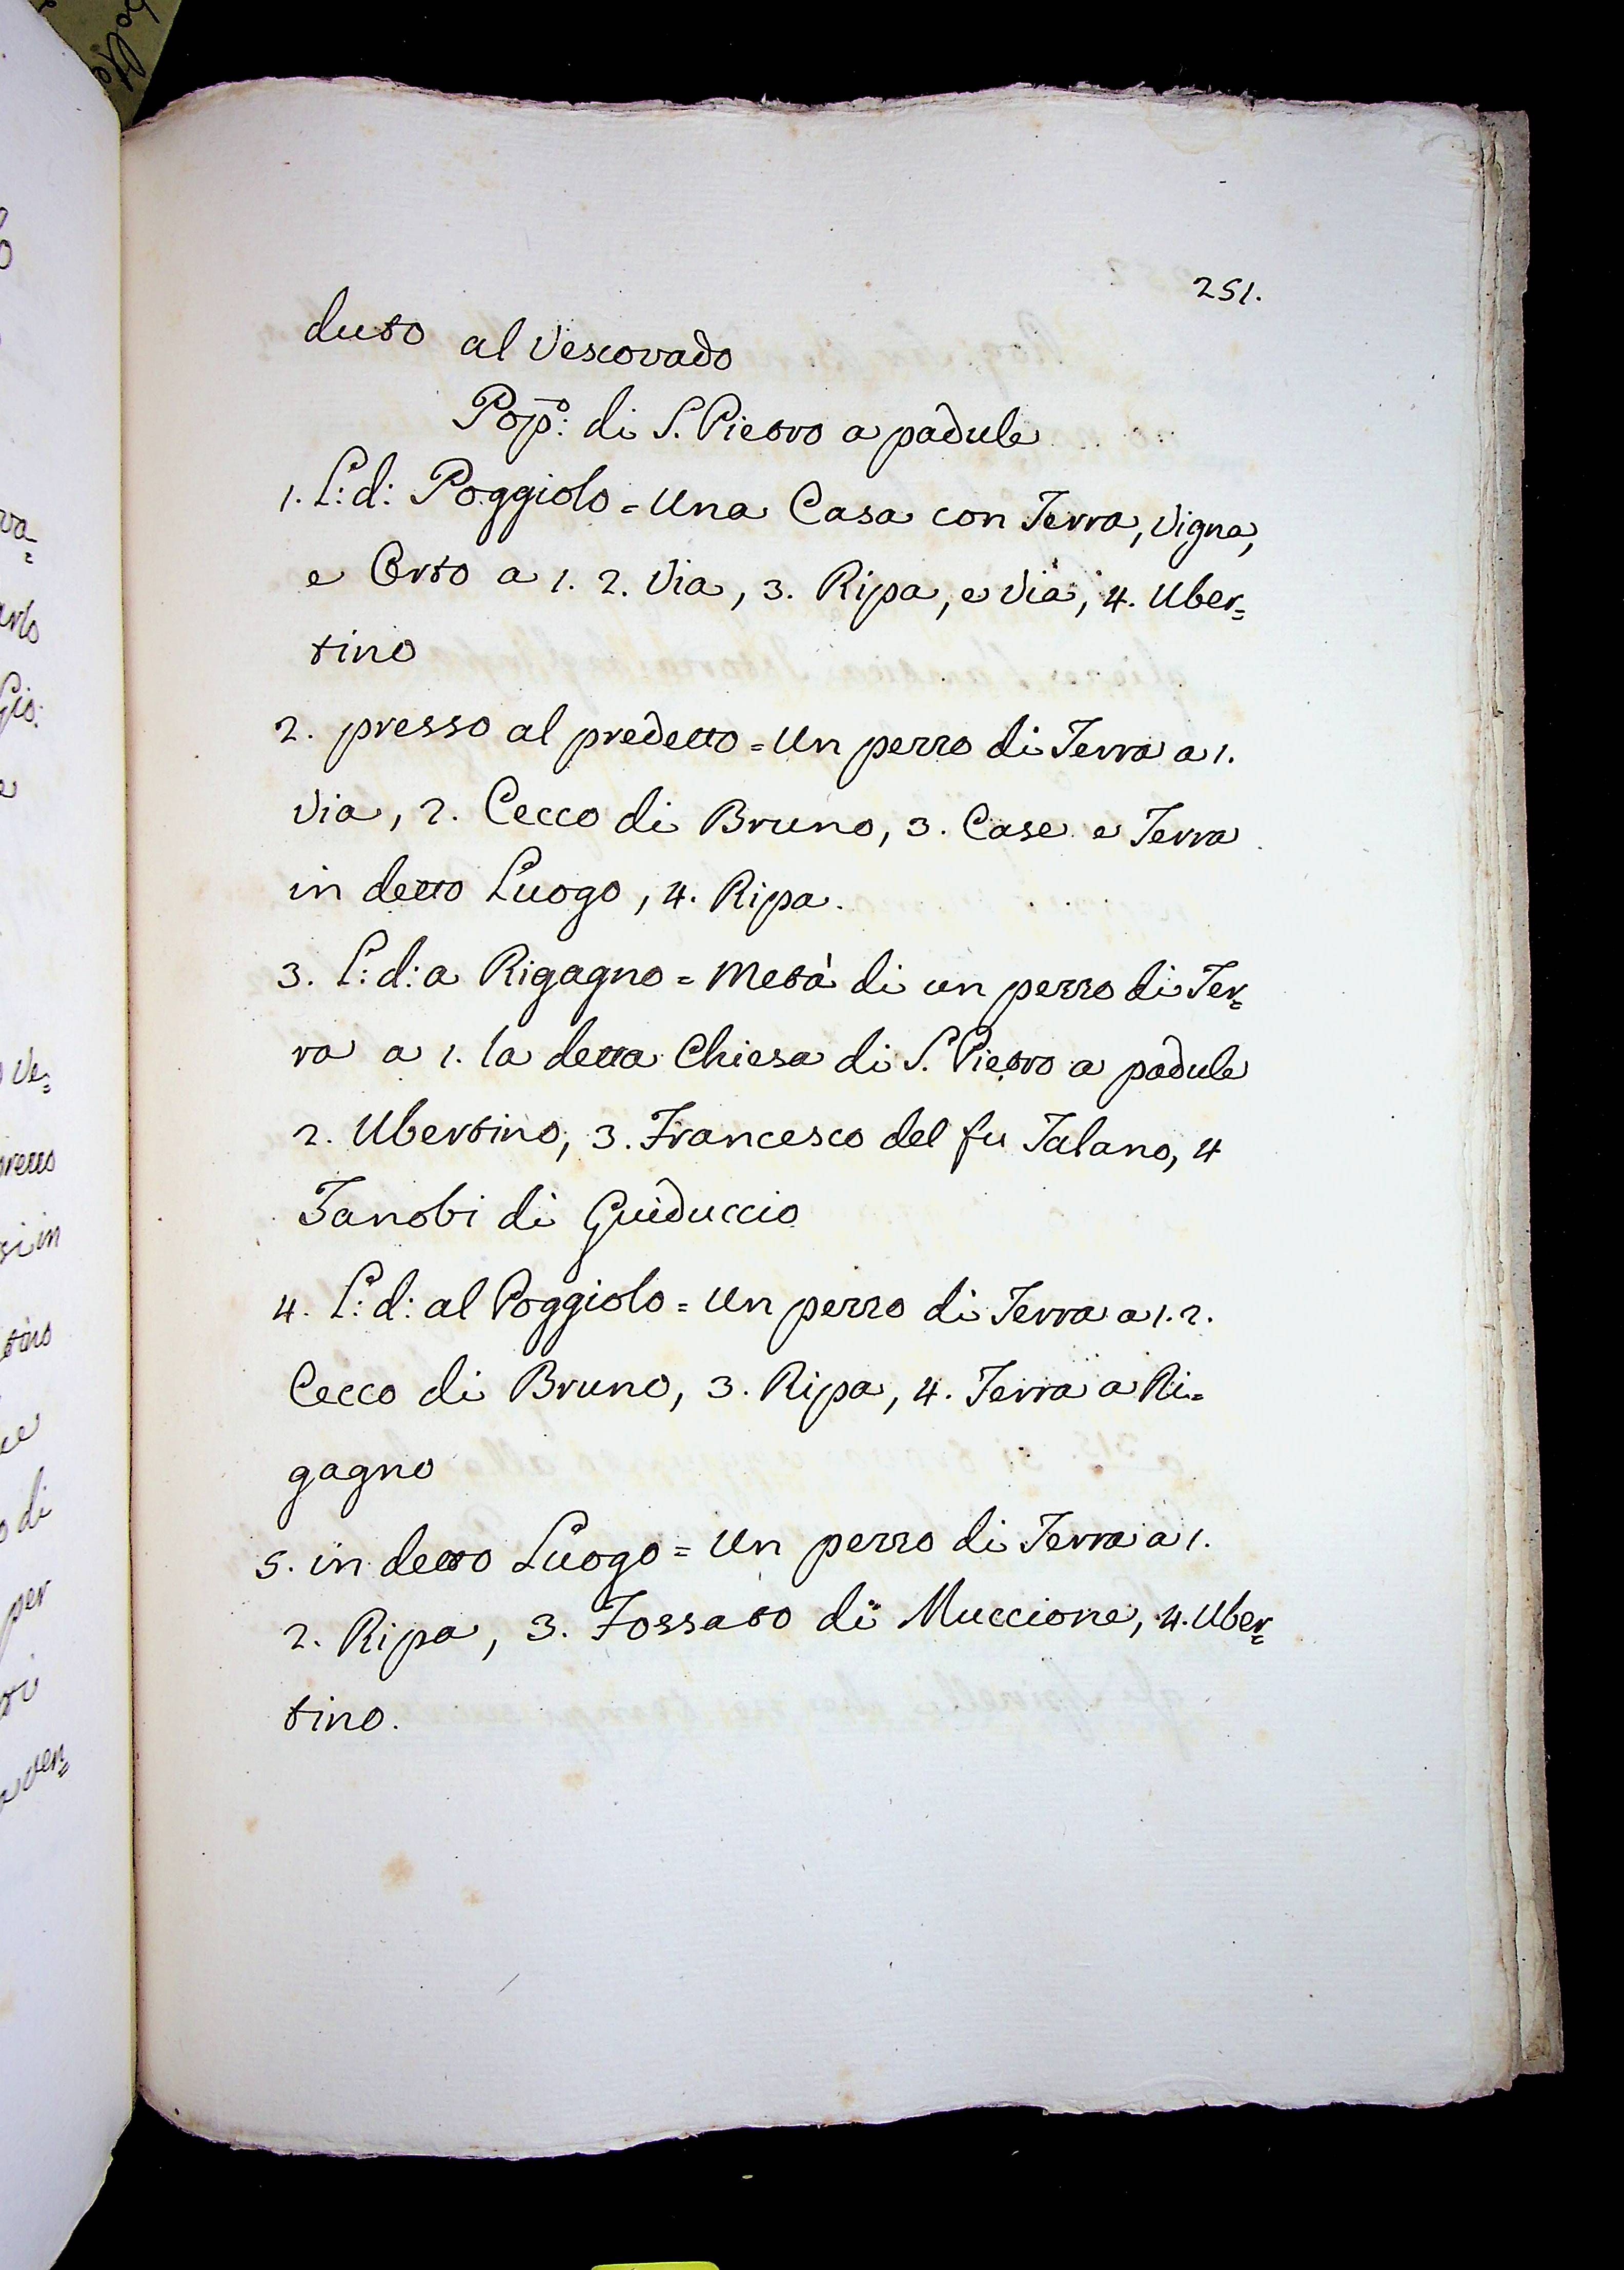 251.
duto al Vescovado
Pop.o: di S. Pietro a padule
1. L: d: Poggiolo = Una Casa con Terra, Vigna,
e Orto a 1. 2. Via, 3. Ripa, e Via, 4. Uber=
tino
2. presso al predetto = Un pezzo di Terra a 1.
Via, 2. Cecco di Bruno, 3. Case e Terra
in detto Luogo, 4. Ripa.
3. L: d: a Rigagno = Metà di un pezzo di Ter=
ra a 1. la detta Chiesa di S. Pietro a padule
2. Ubertino, 3. Francesco del fu Talano, 4
Zanobi di Guiduccio
4. L: d: al Poggiolo = Un pezzo di Terra a 1. 2.
Cecco di Bruno, 3. Ripa, 4. Terra a Ri=
gagno
5. in detto Luogo = Un pezzo di Terra a 1.
2. Ripa, 3. Fossato di Muccione, 4. Uber=
tino.